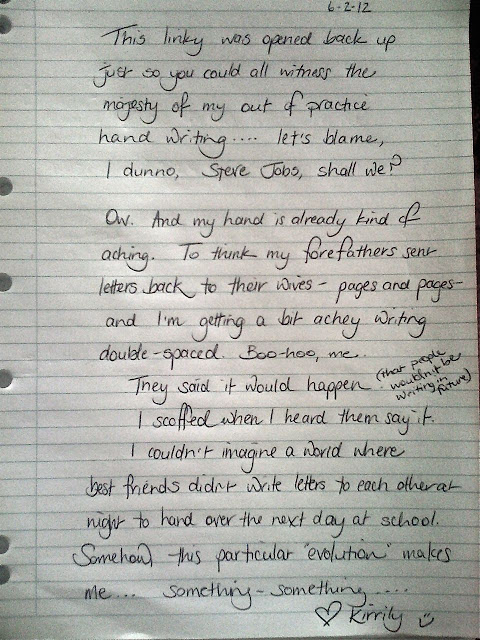 6-2-12
This linky was opened back up
just so you could all witness the
majesty of my out of practice
hand writing.... let's blame,
I dunno, Steve Jobs, shall we?
Ow. And my hand is already kind of
aching. To think my forefathers sent
letters back to their wives - pages and pages -
and I'm getting a bit achey writing
double-spaced. Boo-hoo, me.
They said it would happen (that people
wouldn't be
writing in
future)
I scoffed when I heard them say it.
I couldn't imagine a world where
best friends didn't write letters to each other at
night to hand over the next day at school.
Somehow, this particular "evolution" makes
me... something-something....
♡ Kirrily ☺